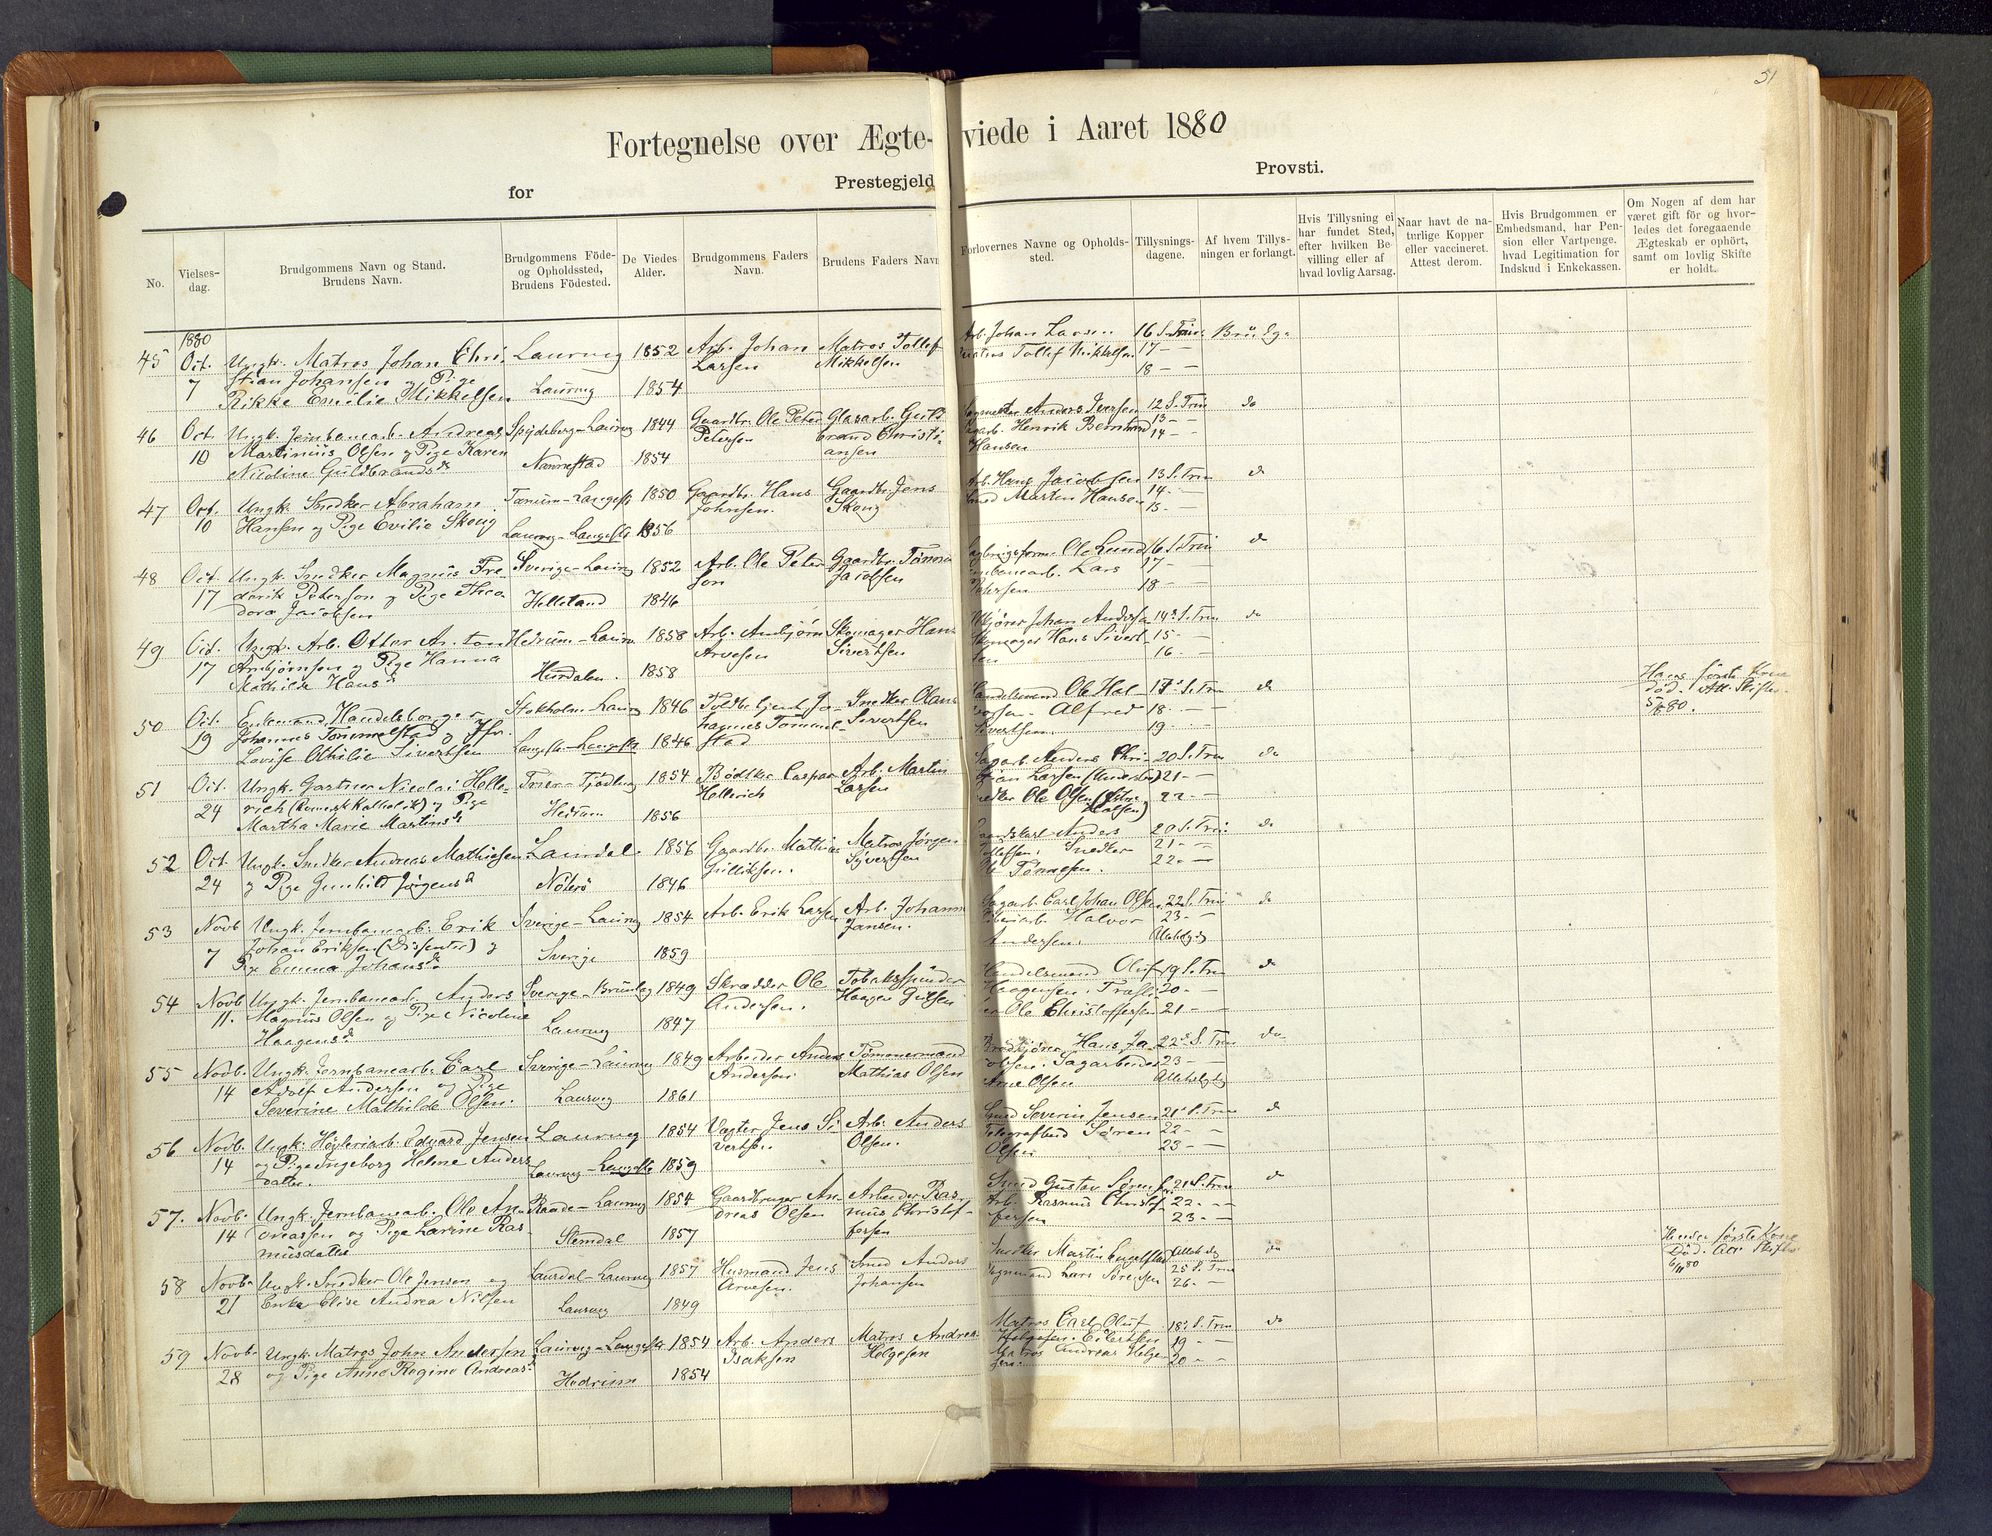 51
Fortegnelse over Ægte-viede i Aaret 1880
for Prestegjeld Provsti.
No.
Vielses-
dag.
Brudgommens Navn og Stand.
Brudens Navn.
Brudgommens Föde-
og Opholdssted,
Brudens Födested.
De Viedes
Alder.
Brudgommens Faders
Navn.
Brudens Faders Navn
Forlovernes Navne og Opholds-
sted.
Tillysnings-
dagene.
Af hvem Tillys-
ningen er forlangt.
Hvis Tillysning ei
har fundet Sted,
efter hvilken Be-
villing eller af
hvad lovlig Aarsag.
Naar havt de na-
turlige Kopper
eller vaccineret.
Attest derom.
Hvis Brudgommen er
Embedsmand, har Pen-
sion eller Vartpenge,
hvad Legitimation for
Indskud i Enkekassen.
Om Nogen af dem har
været gift för og hvor-
ledes det foregaaende
Ægteskab er ophört,
samt om lovlig Skifte
er holdt.
1880
45 Oct. Ungk. Matros Johan Chri Laurvig 1852 Arb. Johan Matros Tollef Arb. Johan Larsen 16 S. Trin
7 stian Johansen og Pige Larsen Mikkelsen Matros Tollef Mikkelsen 17 - -
Rikke Emilie Mikkelsen Laurvig 1854 18 - -
46 Oct. Ungk. Jernbanearb. Andreas Spydeberg-Laurvig 1844 Gaardbr. Ole Peter Glasarb. Guld Anders Iversen 12 S. Trin do
10 Martinius Olsen og Pige Karen Petersen brand Christi Henrik Bernhard 13 - -
Nicoline Guldbrandsd. Nannestad 1854 ansen Hansen 14 -
47 Oct. Ungk. Snedker Abraham Tanum-Langest. 1850 Gaardbr. Hans Gaardbr. Jens Arb. Hans Jacobsen 13 S. Trin do
10 Hansen og Pige Evilie Skoug Johnsen. Skoug Smed Martin Hansen 14 - -
Laurvig-Langest. 1856 15 - -
48 Oct. Ungk. Snedker Magnus Fre Sverige-Laurvig 1852 Arb. Ole Peter Gaardbr. Ole Lund 16 S. Trin do
17 derik Peterson og Pige Theo son Jacobsen Lars 17 -
dora Jacobsen 1846 18 -
49 Oct. Ungk. Arb. Ottar Anton Hedrum-Laurv. 1858 Arb. Anbjørn Skomager Hans Johan Andersen 14de S. Trin do
17 Anbjørnsen og Pige Hanna Arvesen Sivertsen Skomager Hans Sivert 15 -
Mathilde Hansd. Hurdalen. 1858 sen 16 -
50 Oct. Enkemand Handelsborger Stokholm-Laurvig 1846 Toldbetjent Jo Snedker Olaus Handelsmand Ole Hal 17de S. Trin do Hans første Kone
19 Johannes Tommelstad og Jfr. hannes Tommel- Sivertsen vorsen. Alfred 18 - - død. Att. Skifter
Lovise Othilie Sivertsen Langest.-Langest. 1846 stad Sivertsen. 19 - - 80.
51 Oct. Ungk. Gartner Nicolai Helle- Trier-Tjødling 1854 Bødker Caspar Arb. Martin Sagarb. Anders Chri 20 S. Trin do
24 rich (Romersk Katholik) og Pige Hellerich Larsen stian Larsen 21 - -
Martha Marie Martinsd. Hedrum 1856 Snedker Ole Olsen 22 - -
52 Oct. Ungk. Snedker Andreas Mathiesen Laurdal. 1856 Gaardbr. Mathias Matros Jørgen Anders 20 S. Trin do
24 og Pige Gunhild Jørgensd. Nøterø 1846 Gulliksen. Sivertsen Snedker 21 -
Ole Tønnesen. 22 -
53 Novb Ungk. Jernbanearb. Erik Sverige-Laurvig 1854 Arb. Erik Larsen Arb. Johann Sagarb. Carl Johan Olsen 22 S. Trin do
7 Johan Eriksen (Disenter) og Jansen. Halvor 23 -
Pige Emma Johansd. Sverige 1859 Andersen. Allehelgd.
54 Novb Ungk. Jernbanearb. Anders Sverige-Brunlag 1849 Skrædder Ole Tobaksspinder Handelsmand Oluf 19 S. Trin do
11. Magnus Olsen og Pige Nicoline Andersen. Haagen Julsen Haagensen. 20 - -
Haagensd. Laurvig 1847 Ole Christoffersen 21 - -
55 Novb. Ungk. Jernbanearb. Carl Sverige-Laurvig 1849 Arbeider Anders Tømmermand Brødkjører Hans Ja 22de S. Trin do
14 Adolf Andersen og Pige Andersen Mathias Olsen cobsen. Sagarbeider 23 -
Severine Mathilde Olsen. Laurvig 1861 Arne Olsen Allehelgdg
56 Novb. Ungk. Høvleriarb. Edvard Jensen Laurvig 1854 Vægter Jens Si Arb. Anders Smed Severin Jensen 21de S. Trin do
14 og Pige Ingeborg Helene Anders vertsen Olsen. Telegrafbud Søren 22 - -
datter. Laurvig-Langest. 1859 Olsen 23 - -
57. Novb. Ungk. Jernbanearb. Ole An Raade-Laurvig 1854 Gaardbruger An- Arbeider Ras Smed Gustav Sørensen 21 S. Trin do
14 dreassen og Pige Larine Ras dreas Olsen mus Christof- Arb. Rasmus Christof 22 - -
musdatter Slemdal 1857 fersen fersen 23 - -
58 Novb. Ungk. Snedker Ole Jensen og Laurdal-Laurvig 1857 Husmand Jens Smed Anders Snedker Martin Engelstad Allehdg do Hendes første Kone
21 Enke Elise Andrea Nilsen Arvesen. Johansen Lars Sørensen 25 S. Trin Død. Att. Skifte
Laurvig 1849 26 - - 6/11 80
59 Novb. Ungk. Matros John Andersen Laurvig-Langest. 1854 Arb. Anders Matros Andreas Matros Carl Oluf 18de S. Trin do
28 og Pige Anne Regine Andreasd. Isaksen Helgesen Helgesen. Eilertsen 19 - -
Hedrum 1854 Matros Andreas Helge 20 - -
sen.